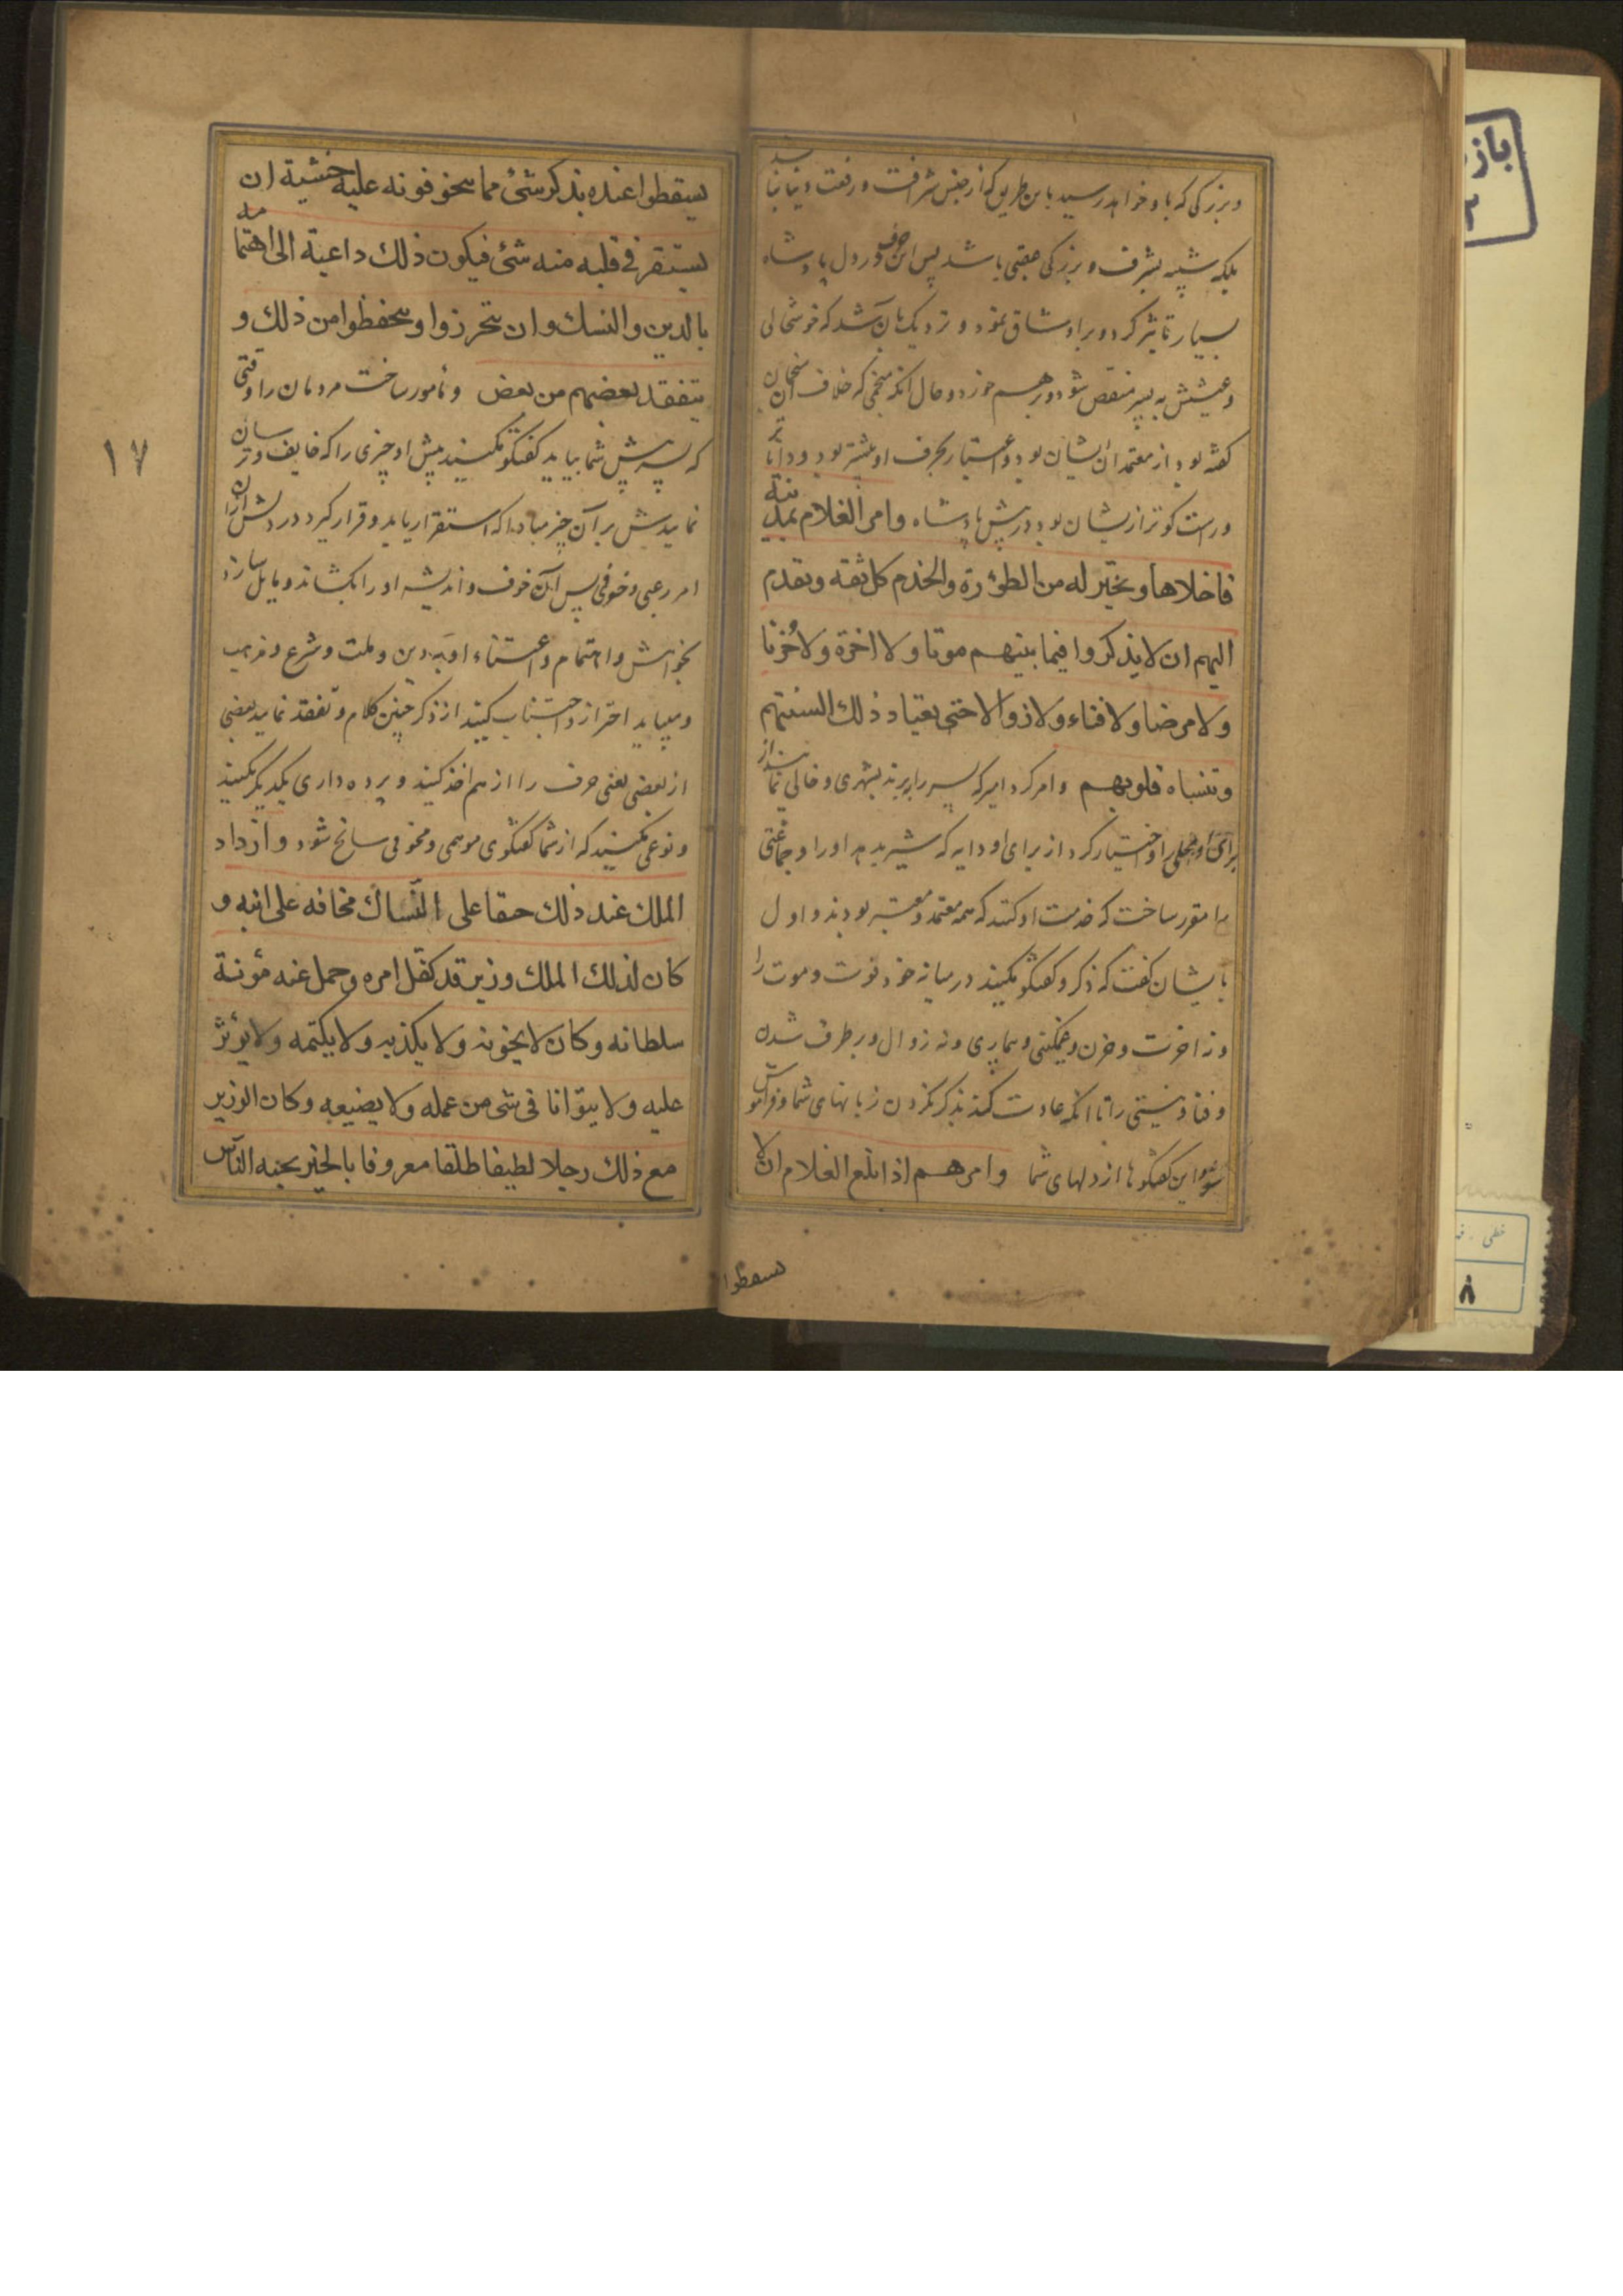 و بزرگی که باو خواهد رسید باین طریق که از جنس شرافت و رفعت دنیا نباشد
بلکه شبیه بشرف و بزرگی عقبی باشد پس این حرف در دل پادشاه
بسیار تاثیر کرد و بر او شاق نمود و نزدیک بآن شد که خوشحالی
و عیشش به پسر منقص شود و برهم خورد و حال انکه منجمی که خلاف آن سخنان
گفته بود از معتمدان ایشان بود و اعتبار بحرف او بیشتر بود و داناتر
و راست کوتر ازیشان بود در پیش پادشاه وامر الغلام بمدینة
فاخلاها وبخیر له من الظؤرة والخدم کل ثقه وتقدم
الیهم ان لا یذکروا فیما بینهم موتا ولا اخرة ولا حزنا
ولا مرضا ولا فناء ولا زوالا حتی یعتاد ذلك السنتهم
وتنساه قلوبهم و امر کرد امیر که پسر را برند بشهری و خالی نمایند از
برای او محلی را و اختیار کرد از برای او دایه که شیر بدهد او را و جماعتی
را مقرر ساخت که خدمت او کنند که همه معتمد و معتبر بودند و اول
بایشان گفت که ذکر و گفتگو مکنید در میانه خود فوت و موت را
و نه اخرت و حزن و غمگینی و بیماری و نه زوال و برطرف شدن
و فنا و نیستی را تا انکه عادت کند بذکر نکردن زبانهای شما و فراموش
شود این گفتگوها از دلهای شما وامرهم اذا بلغ الغلام ان لا
یسقطوا
یسقطوا عنده بذکر شئ مما یخوفونه علیه خشیة ان
یستقر فی قلبه منه شئ فیکون ذلك داعیة الی اهتمامه
بالدین والنسك وان یتحرزوا ویحفظوا من ذلك و
یتفقد بعضهم من بعض و مامور ساخت مردمان را وقتی
که پسرش پیش شما بیاید گفتگو مکنید پیش او چیزی را که خایف و ترسان
نمایدش بر آن چیز مبادا که استقرار یابد و قرار گیرد در دلش از آن
امر رعبی و خوفی پس آن خوف و اندیشه او را بکشاند و مایل سازد
بخواهش و اهتمام و اعتناء او به دین و ملت و شرع و مذهب
و میباید احتراز و اجتناب کنید از ذکر چنین کلام و تفقد نماید بعضی
از بعضی یعنی حرف را از هم اخذ کنید و پرده داری یکدیگر مکنید
و نوعی مکنید که از شما گفتگوی موهمی و مخوفی سانح شود وازداد
الملك عند ذلك حنقا علی النساك مخافه علی ابنه و
کان لذلك الملك وزیر قد کفل امره وحمل عنه مؤنة
سلطانه وکان لا یخونه ولا یکذبه ولا یکتمه ولا یؤثر
علیه ولا یتوانا فی شی من عمله ولا یضیعه وکان الوزیر
مع ذلك رجلا لطیفا طلقا معروفا بالخیر یحبه الناس
١٧
باز
٢
خطی
٨